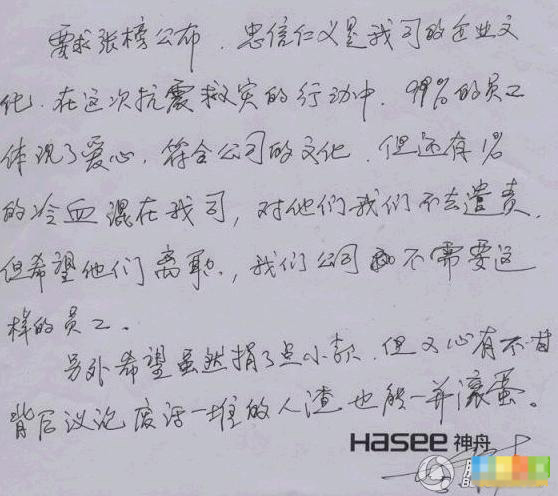 要求张榜公布，忠信仁义是我司的企业文
化，在这次抗震救灾的行动中，99%的员工
体现了爱心，符合公司的文化，但还有1%
的冷血混在我司，对他们我们不去遣责，
但希望他们离职，我们公司不需要这
样的员工。
另外希望虽然捐了点小钱，但又心有不甘
背后议论废话一堆的人渣也能一并滚蛋。
Hasee 神舟